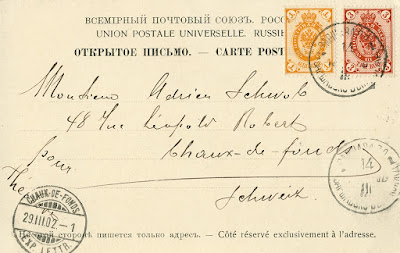 ВСЕМІРНЫЙ ПОЧТОВЫЙ СОЮЗЪ. РОСС
UNION POSTALE UNIVERSELLE. RUSSIE
ОТКРЫТОЕ ПИСЬМО. — CARTE POST
Monsieur Adrien Schwob
48 Rue Léopold Robert
pour Chaux-de-fonds
Schweiz
CHAUX-DE-FONDS
29.III.02.-1
EXP. LETTR.
14
III
сторонѣ пишется только адресъ. — Côté réservé exclusivement à l'adresse.